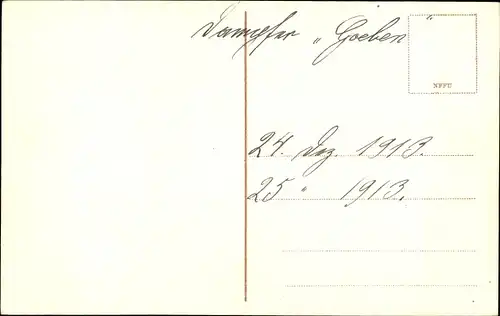 Dampfer „Goeben"
NPFC
24. Dez. 1913.
25 " 1913.